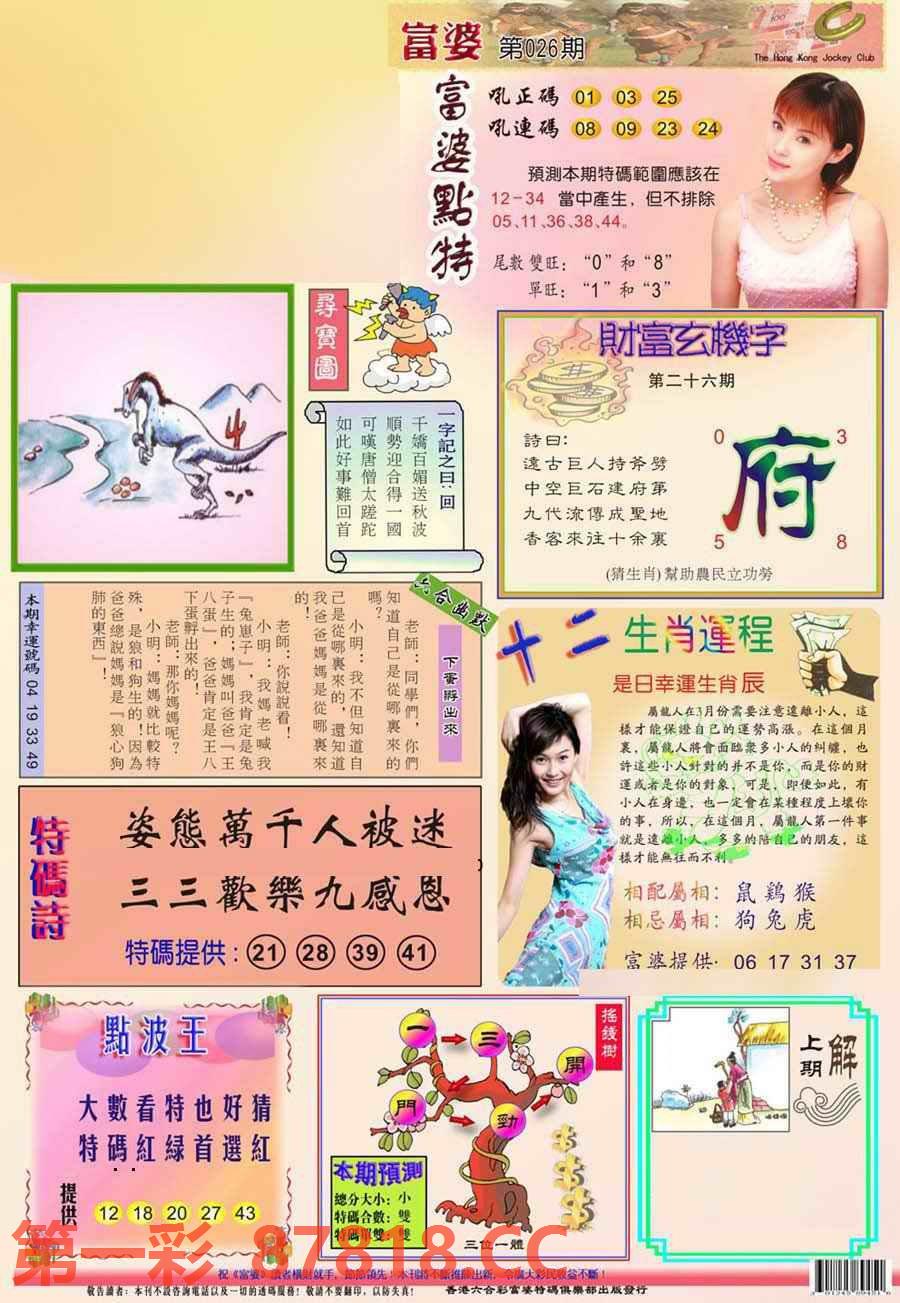 富婆 第026期
The Hong Kong Jockey Club
富婆點特
吼正碼 01 03 25
吼連碼 08 09 23 24
預測本期特碼範圍應該在
12-34 當中產生，但不排除
05、11、36、38、44。
尾數雙旺：“0”和“8”
單旺：“1”和“3”
尋寶圖
一字記之曰：回
千嬌百媚送秋波
順勢迎合得一國
可嘆唐僧太蹉跎
如此好事難回首
財富玄機字
第二十六期
詩曰：
遠古巨人持斧劈
中空巨石建府第
九代流傳成聖地
香客來往十余裏
0 3
府
5 8
(猜生肖)幫助農民立功勞
六合幽默
下蛋孵出來
老師：同學們，你們
知道自己是從哪裏來的
嗎？
小明：我不但知道自
己是從哪裏來的，還知道
我爸爸媽媽是從哪裏來
的！
老師：你說說看！
小明：我媽老喊我
『兔崽子』，我肯定是兔
子生的，媽媽叫爸爸『王
八蛋』，爸爸肯定是王八
下蛋孵出來的！
老師：那你媽媽呢？
小明：媽媽就比較特
殊，是狼和狗生的！因為
爸爸總說媽媽是『狼心狗
肺的東西』！
本期幸運號碼 04 19 33 49
十二生肖運程
是日幸運生肖辰
屬龍人在3月份需要注意遠離小人，這
樣才能保證自己的運勢高漲。在這個月
裏，屬龍人將會面臨衆多小人的糾纏，也
許這些小人針對的并不是你，而是你的財
運或者是你的對象，可是，即便如此，有
小人在身邊，也一定會在某種程度上壞你
的事，所以，在這個月，屬龍人第一件事
就是遠離小人，多多的陪自己的朋友，這
樣才能無往而不利。
相配屬相：鼠 鷄 猴
相忌屬相：狗 兔 虎
富婆提供：06 17 31 37
特碼詩
姿態萬千人被迷
三三歡樂九感恩
特碼提供：21 28 39 41
點波王
大數看特也好猜
特碼紅緑首選紅
提供 12 18 20 27 43
搖錢樹
一 三 開
門 勁
本期預測
總分大小：小
特碼合數：雙
特碼單雙：雙
三位一體
上期解
第一彩 87818.CC
祝《富婆》讀者橫財就手，節節領先！本刊將不斷推陳出新，令廣大彩民收益不斷！
敬告讀者：本刊不設咨詢電話以及一切的透碼服務！敬請不要翻印，以防失真！
香港六合彩富婆特碼俱樂部出版發行